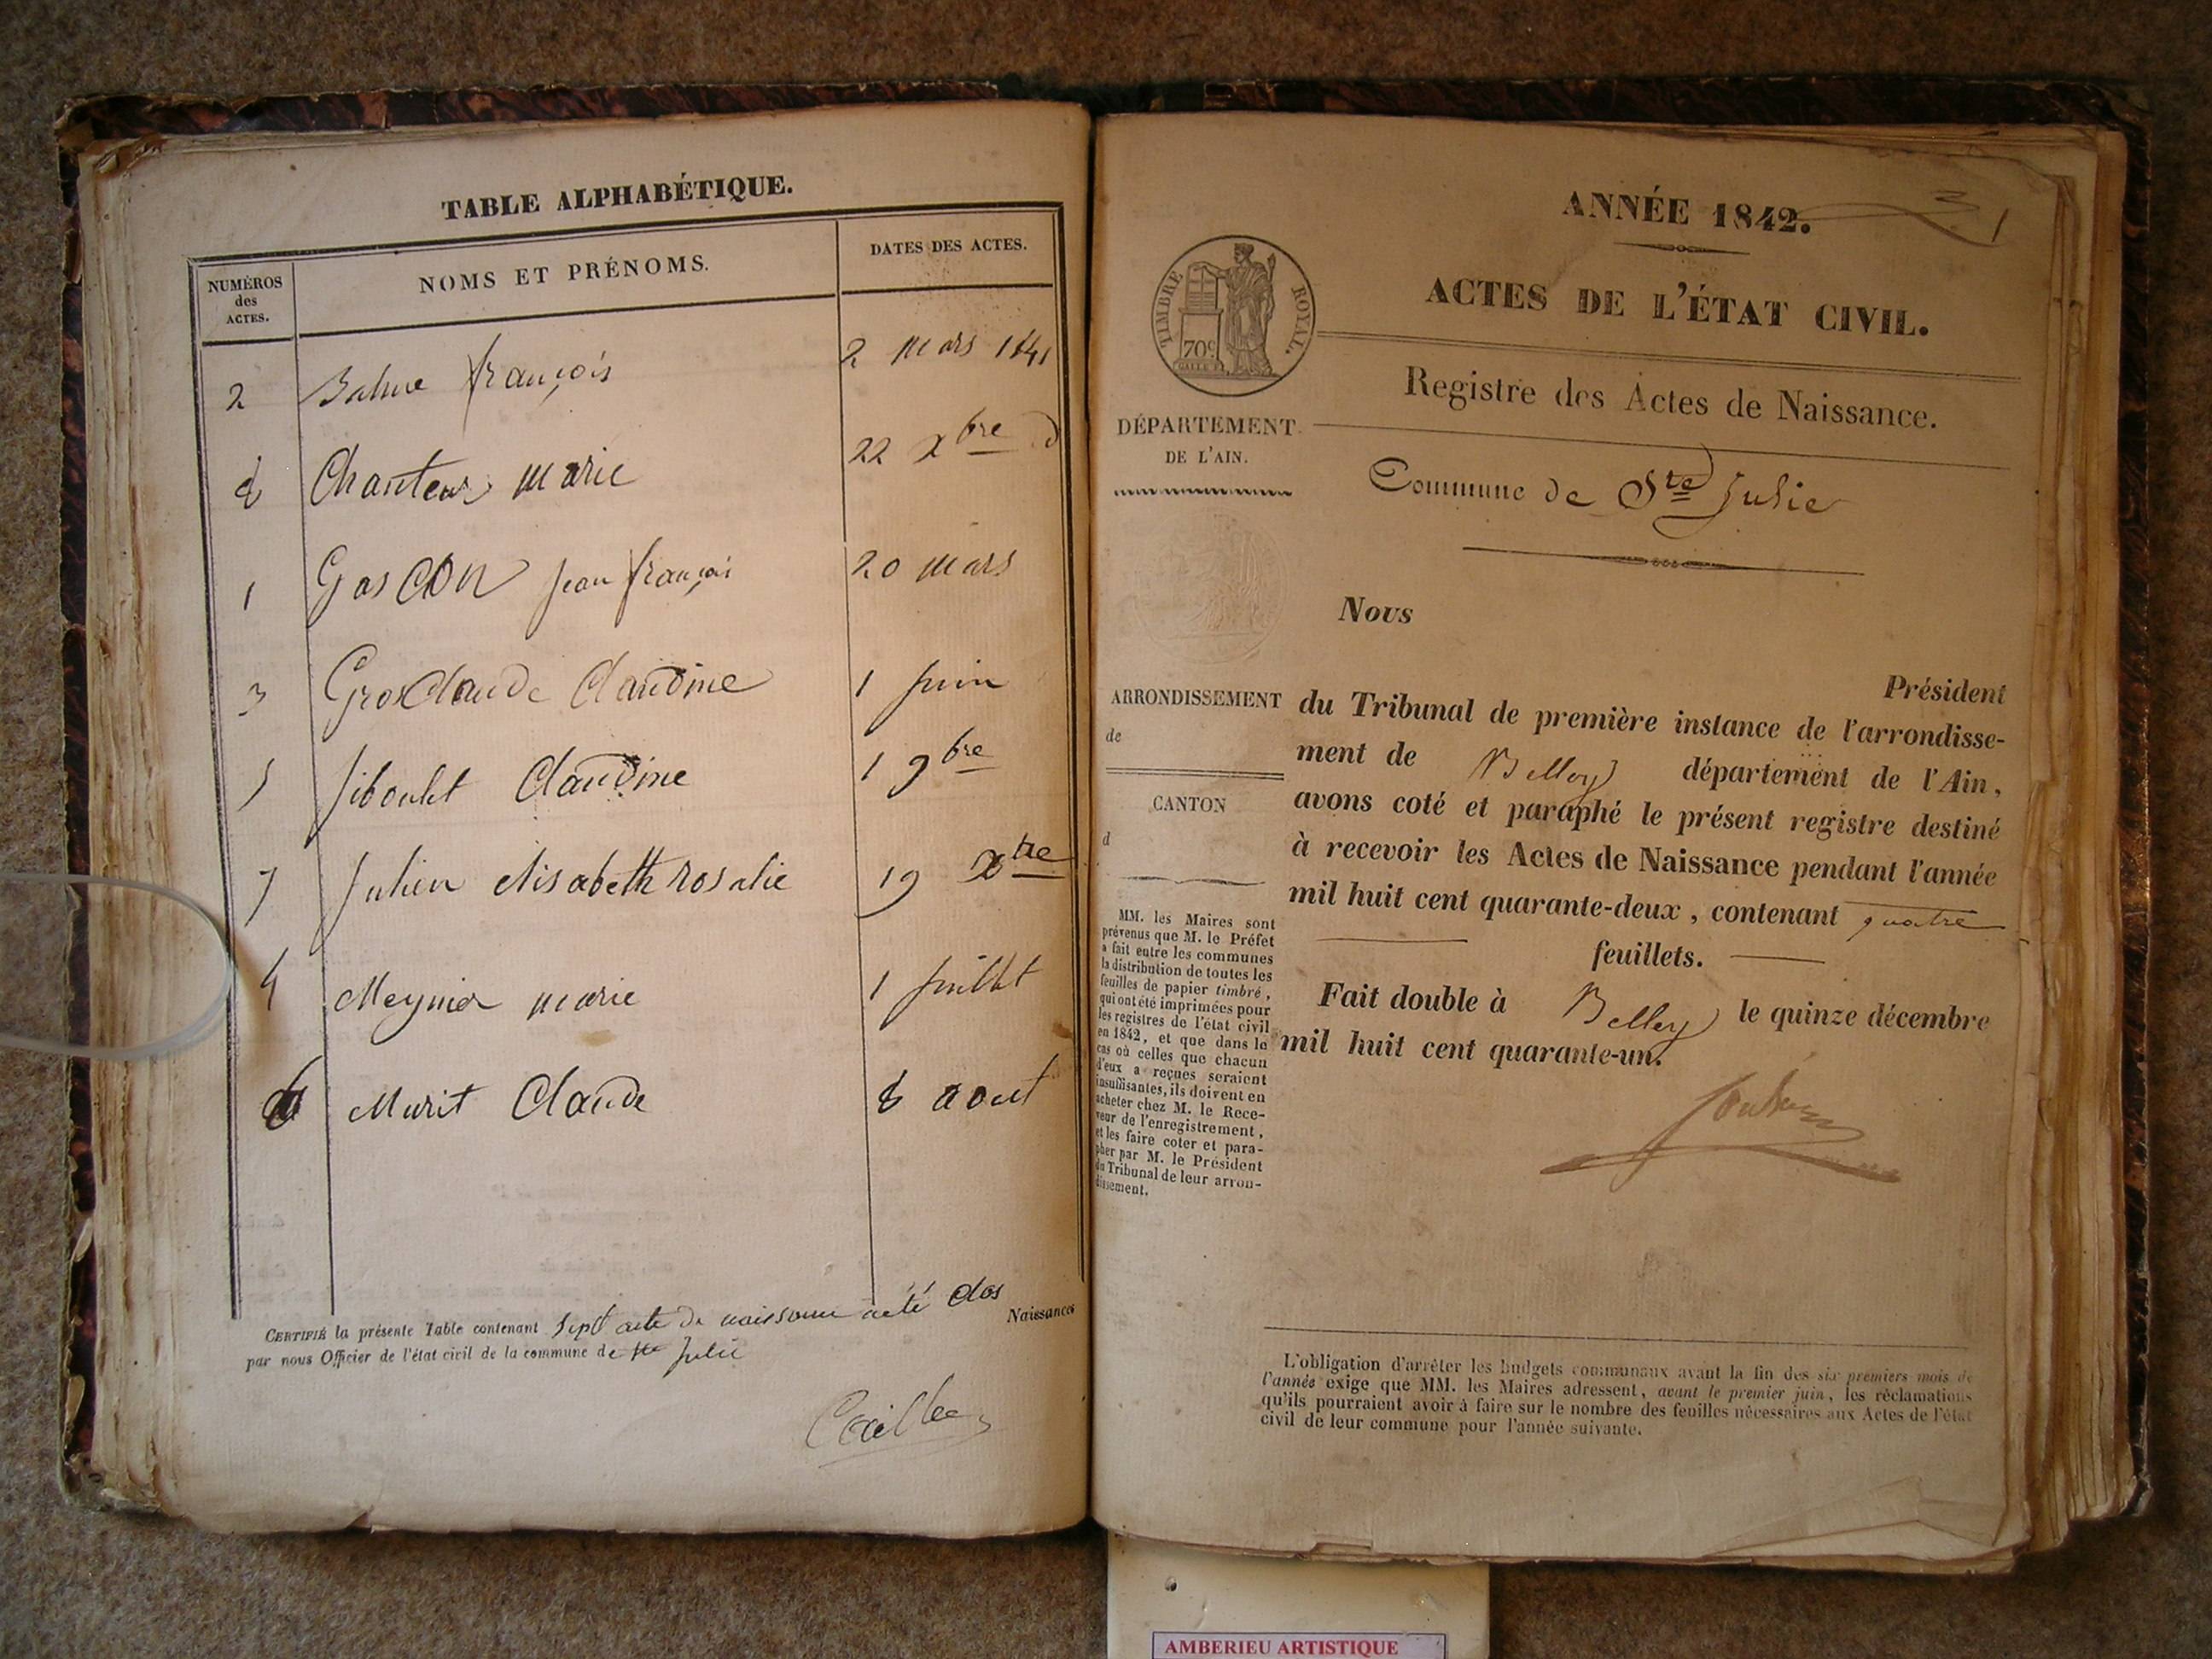 TABLE ALPHABÉTIQUE.
NUMÉROS
des
ACTES.
NOMS ET PRÉNOMS.
DATES DES ACTES.
2 Balme françois 2 mars 1841
8 Chanteur marie 22 xbre d
1 Gascon jean françois 20 mars
3 Grosclaude Claudine 1 juin
5 Claudine 1 9bre
7 Julien elisabeth rosalie 19 xbre
4 Meynier marie 1 juillet
6 Murit Claude 8 aout
CERTIFIÉ la présente Table contenant sept acte de naissance Clos Naissances
par nous Officier de l'état civil de la commune de Ste Julie
ANNÉE 1842.
1
ACTES DE L'ÉTAT CIVIL.
TIMBRE ROYAL.
70c
Registre des Actes de Naissance.
DÉPARTEMENT
DE L'AIN.
Commune de Ste Julie
Nous
Président
ARRONDISSEMENT
de
CANTON
d
du Tribunal de première instance de l'arrondisse-
ment de Belley département de l'Ain,
avons coté et paraphé le présent registre destiné
à recevoir les Actes de Naissance pendant l'année
mil huit cent quarante-deux, contenant quatre
feuillets.
Fait double à Belley le quinze décembre
mil huit cent quarante-un.
MM. les Maires sont
prévenus que M. le Préfet
a fait entre les communes
la distribution de toutes les
feuilles de papier timbré,
qui ont été imprimées pour
les registres de l'état civil
en 1842, et que dans le
cas où celles que chacun
d'eux a reçues seraient
insuffisantes, ils doivent en
acheter chez M. le Rece-
veur de l'enregistrement,
et les faire coter et para-
pher par M. le Président
du Tribunal de leur arron-
dissement.
L'obligation d'arrêter les budgets communaux avant la fin des six premiers mois de
l'année exige que MM. les Maires adressent, avant le premier juin, les réclamations
qu'ils pourraient avoir à faire sur le nombre des feuilles nécessaires aux Actes de l'état
civil de leur commune pour l'année suivante.
AMBERIEU ARTISTIQUE